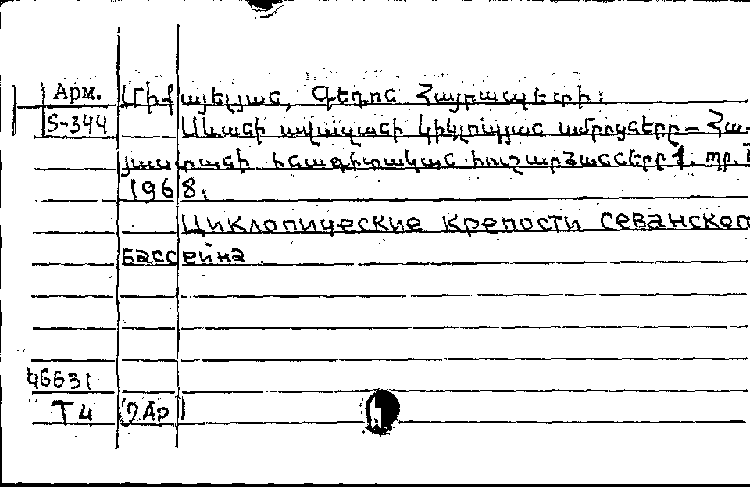 Арм. Միքայելյան, Գեղոց Հայրապետի:
S-344 Սևանի ավազանի կիկլոպյան ամրոցները – Հա
յաստանի հնագիտական հուշարձանները 1. пр.
1968.
Циклопические крепости севанского
бассейна
46631
Т4 (9Ар)